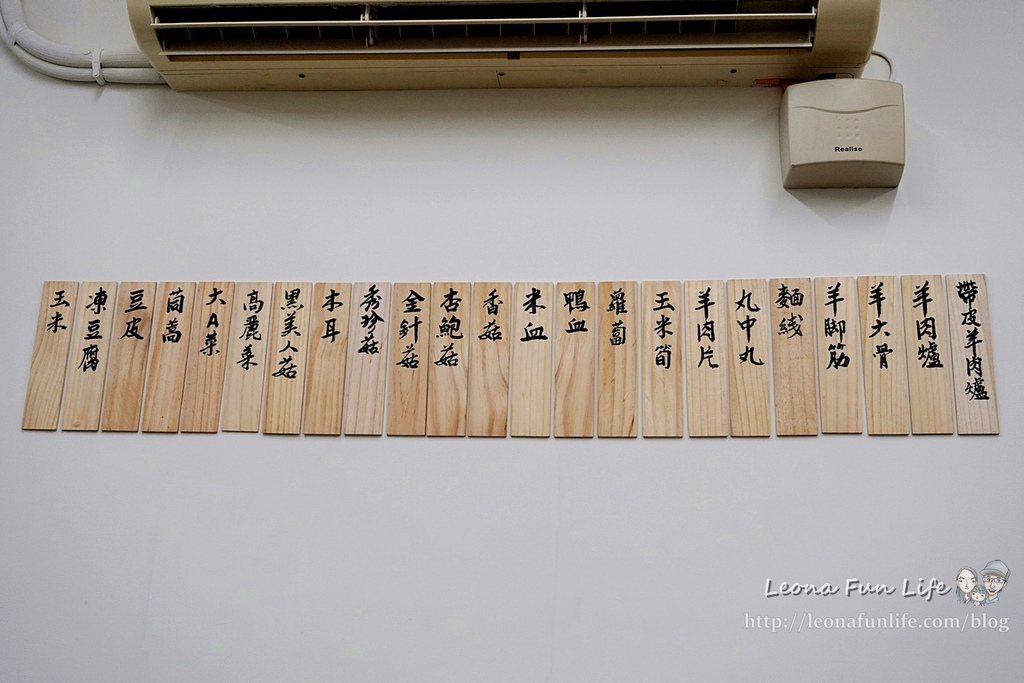 Realise
帶皮羊肉爐
羊肉爐
羊大骨
羊脚筋
麵綫
丸中丸
羊肉片
玉米筍
蘿蔔
鴨血
米血
香菇
杏鮑菇
金針菇
秀珍菇
木耳
黑美人菇
高麗菜
大A菜
茼蒿
豆皮
凍豆腐
玉米
Leona Fun Life
http://leonafunlife.com/blog